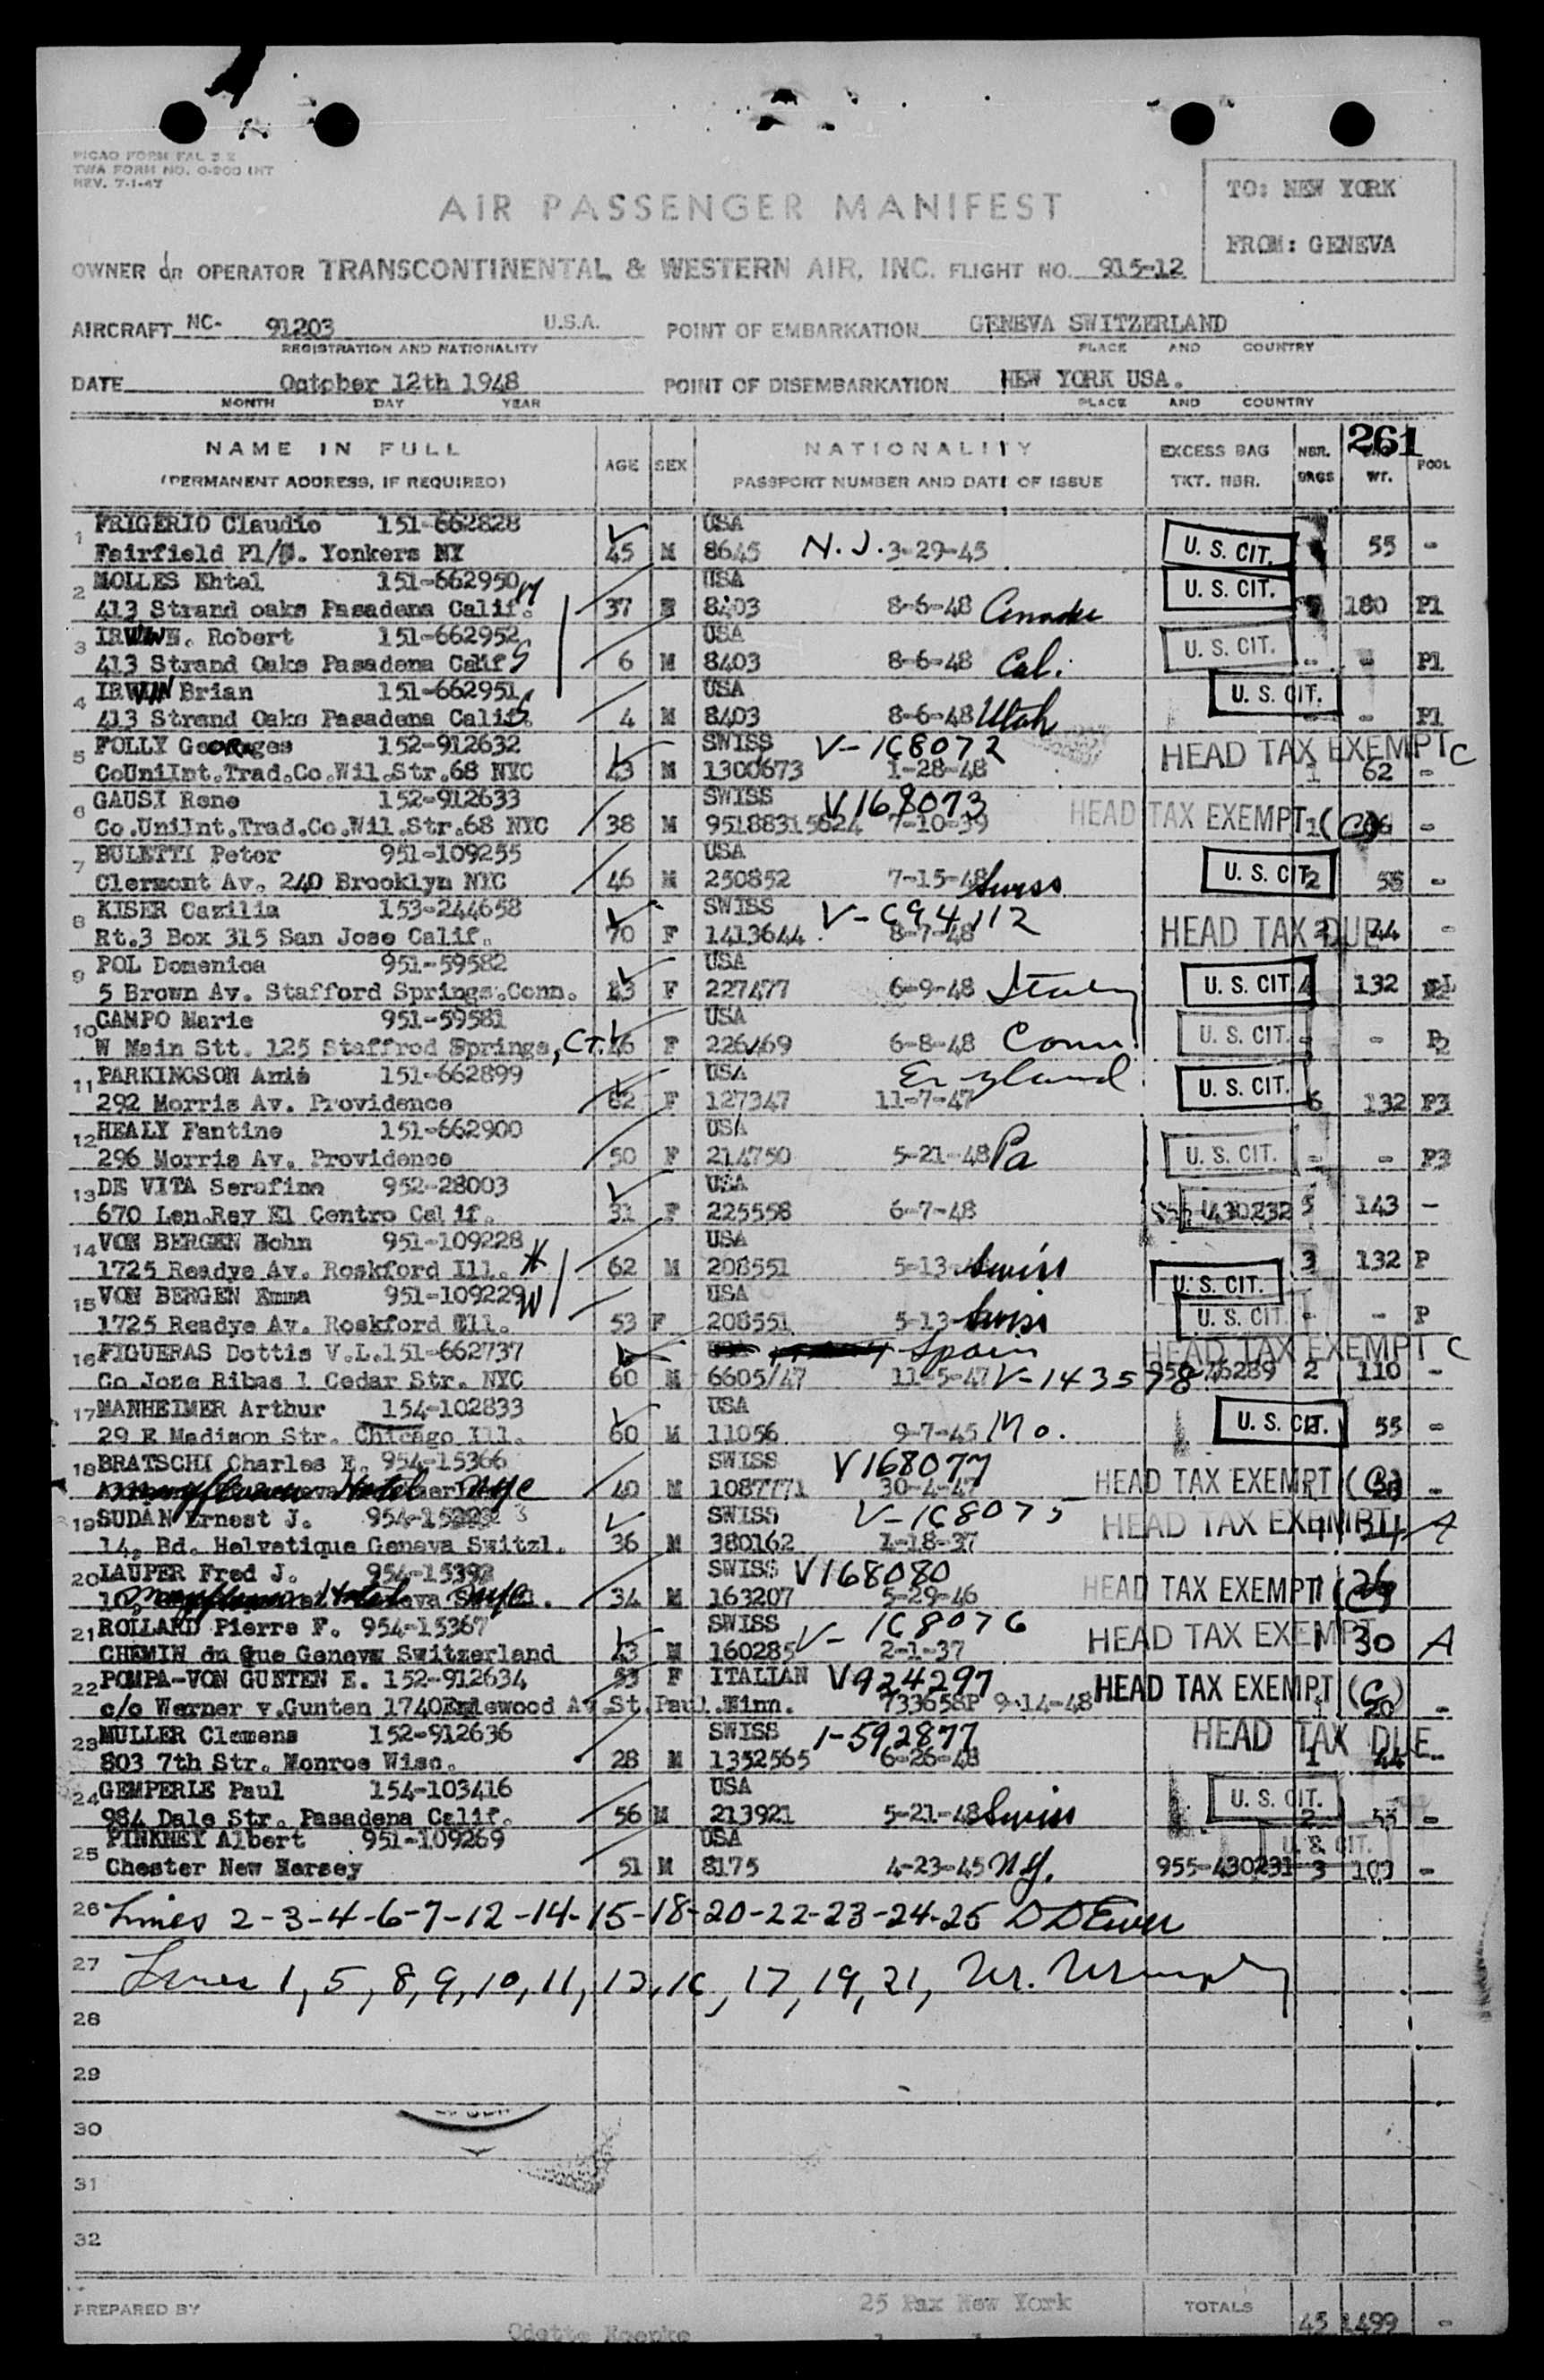 PICAO FORM FAL 3.2
TWA FORM NO. O-200 INT
REV. 7-1-47
AIR PASSENGER MANIFEST
TO: NEW YORK
FROM: GENEVA
OWNER or OPERATOR TRANSCONTINENTAL & WESTERN AIR, INC. FLIGHT NO. 915-12
AIRCRAFT NC- 91203 U.S.A. POINT OF EMBARKATION GENEVA SWITZERLAND
REGISTRATION AND NATIONALITY PLACE AND COUNTRY
DATE October 12th 1948 POINT OF DISEMBARKATION NEW YORK USA.
MONTH DAY YEAR PLACE AND COUNTRY
261
NAME IN FULL AGE SEX NATIONALITY EXCESS BAG NBR. POOL
(PERMANENT ADDRESS, IF REQUIRED) PASSPORT NUMBER AND DATE OF ISSUE TKT. NBR. BAGS WT.
1 FRIGERIO Claudio 151-662828 USA
Fairfield Pl/ . Yonkers NY 45 M 8645 N.J. 3-29-45 U. S. CIT. 55 -
2 MOLLES Ehtel 151-662950 USA
413 Strand oaks Pasadena Calif. 37 8403 8-6-48 Canada U. S. CIT. 180 P1
3 IRWIN. Robert 151-662952 USA
413 Strand Oaks Pasadena Calif S 6 M 8403 8-6-48 Cal. U. S. CIT. - - P1
4 IRWIN Brian 151-662951 USA
413 Strand Oaks Pasadena Calif. S 4 M 8403 8-6-48 Utah U. S. CIT. - - P1
5 FOLLY Georges 152-912632 SWISS V-168072
CoUniInt.Trad.Co.Wil.Str.68 NYC 43 M 1300673 1-28-48 HEAD TAX EXEMPT C 1 62 -
6 GAUSI Rene 152-912633 SWISS V168073
Co.UniInt.Trad.Co.Wil.Str.68 NYC 38 M 95188315624 7-10-39 HEAD TAX EXEMPT (C) 1 -
7 BULETTI Peter 951-109255 USA
Clermont Av. 240 Brooklyn NYC 46 M 250852 7-15-48 Swiss U. S. CIT. 2 55 -
8 KISER Cazilia 153-244658 SWISS V-694112
Rt.3 Box 315 San Jose Calif. 70 F 1413644 8-7-48 HEAD TAX DUE 2 44 -
9 POL Domenica 951-59582 USA
5 Brown Av. Stafford Springs.Conn. 43 F 227477 6-9-48 Italy U. S. CIT. 4 132
10 CAMPO Marie 951-59581 USA
W Main Stt. 125 Staffrod Springs, CT. 46 F 226469 6-8-48 Conn. U. S. CIT. - - P2
11 PARKINGSON Anie 151-662899 USA England
292 Morris Av. Providence 62 F 127347 11-7-47 U. S. CIT. 6 132 P3
12 HEALY Fantine 151-662900 USA
296 Morris Av. Providence 50 F 214750 5-21-48 Pa U. S. CIT. - - P3
13 DE VITA Serafina 952-28003 USA
670 Len.Rey El Centro Calif. 31 F 225558 6-7-48 955-430232 5 143 -
14 VON BERGEN Hohn 951-109228 USA
1725 Readye Av. Roskford Ill. H 62 M 208551 5-13- Swiss U. S. CIT. 3 132 P
15 VON BERGEN Emma 951-109229 W USA
1725 Readye Av. Roskford Ill. 53 F 208551 5-13- Swiss U. S. CIT. - - P
16 FIGUERAS Dottis V.L. 151-662737 Spain
Co Jose Ribas 1 Cedar Str. NYC 60 M 6605/47 11-5-47 V-143598 HEAD TAX EXEMPT C 2 110 -
17 MANHEIMER Arthur 154-102833 USA
29 E Madison Str. Chicago Ill. 60 M 11056 9-7-45 Mo. U. S. CIT. 55 -
18 BRATSCHI Charles E. 954-15366 SWISS V168077
Mayflower Hotel nyc 40 M 1087771 30-4-47 HEAD TAX EXEMPT (C) -
19 SUDAN Ernest J. SWISS V-168075
14, Bd. Helvetique Geneva Switzl. 36 M 380162 1-18-37 HEAD TAX EXEMPT 1 34 A
20 LAUPER Fred J. 954-15392 SWISS V168080
Mayflower Hotel nyc 34 M 163207 5-29-46 HEAD TAX EXEMPT 1 26
21 ROLLARD Pierre F. 954-15367 SWISS V-168076
CHEMIN du Gue Geneva Switzerland 43 M 160285 2-1-37 HEAD TAX EXEMPT 30 A
22 POMPA-VON GUNTEN E. 152-912634 53 F ITALIAN V924297
c/o Werner v.Gunten 1740Englewood Av.St.Paul.Minn. 733658P 9-14-48 HEAD TAX EXEMPT (C) 1 20 -
23 MULLER Clemens 152-912636 SWISS 1-592877
803 7th Str. Monroe Wisc. 28 M 1352565 6-26-48 HEAD TAX DUE 1 44 -
24 GEMPERLE Paul 154-103416 USA
984 Dale Str. Pasadena Calif. 56 M 213921 5-21-48 Swiss U. S. CIT. 2 55 -
25 PINKNEY Albert 951-109269 USA
Chester New Harsey 51 M 8175 4-23-45 NY. U. S. CIT. 955-430231 3 -
26 Lines 2-3-4-6-7-12-14-15-18-20-22-23-24-25
27 Lines 1, 5, 8, 9, 10, 11, 13, 16, 17, 19, 21,
28
29
30
31
32
25 Pax New York
PREPARED BY Odette Koepke TOTALS 45 1499 -